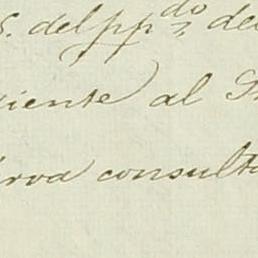 5. del pp.do de
iente al S
irva consulta